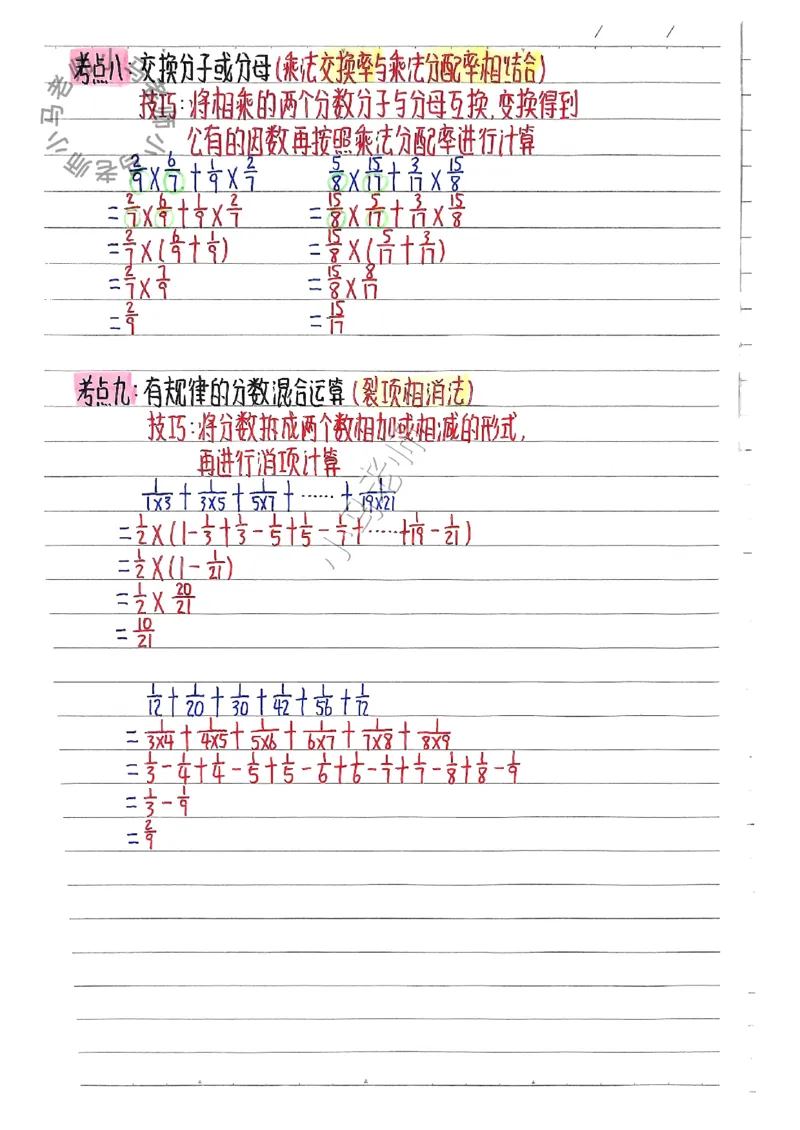 / /
考点八:交换分子或分母(乘法交换率与乘法分配率相结合)
技巧:将相乘的两个分数分子与分母互换,变换得到
公有的因数再按照乘法分配率进行计算
2/9×6/7+1/9×2/7 5/8×15/17+3/17×15/8
=2/7×6/9+1/9×2/7 =15/8×5/17+3/17×15/8
=2/7×(6/9+1/9) =15/8×(5/17+3/17)
=2/7×7/9 =15/8×8/17
=2/9 =15/17
考点九:有规律的分数混合运算(裂项相消法)
技巧:将分数拆成两个数相加或相减的形式,
再进行消项计算
1/1×3+1/3×5+1/5×7+……+1/19×21
=1/2×(1-1/3+1/3-1/5+1/5-1/7+……+1/19-1/21)
=1/2×(1-1/21)
=1/2×20/21
=10/21
1/12+1/20+1/30+1/42+1/56+1/72
=1/3×4+1/4×5+1/5×6+1/6×7+1/7×8+1/8×9
=1/3-1/4+1/4-1/5+1/5-1/6+1/6-1/7+1/7-1/8+1/8-1/9
=1/3-1/9
=2/9
小马老师
小马老师
小马老师